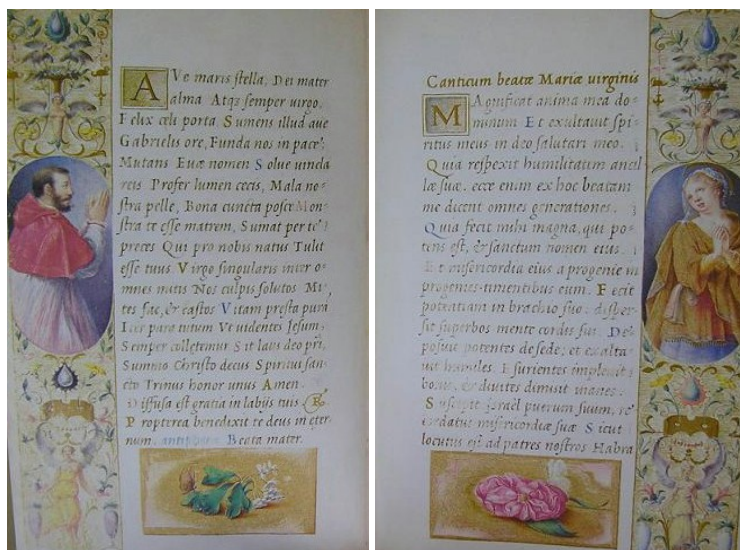 Ave maris stella, Dei mater
alma Atqs semper uirgo,
Felix cœli porta Sumens illud aue
Gabrielis ore, Funda nos in pace,
Mutans Euæ nomen Solue uincla
reis Profer lumen cecis, Mala no-
stra pelle, Bona cuncta posce Mon-
stra te esse matrem, Sumat per te
preces Qui pro nobis natus Tulit
esse tuus Virgo singularis inter o-
mnes mitis Nos culpis solutos Mi-
tes fac, & castos Vitam præsta purã
Iter para tutum Vt uidentes Iesum,
Semper collętemur Sit laus deo pri,
Summo Christo decus Spiritui san-
cto Trinus honor unus Amen.
Diffusa est gratia in labijs tuis R
Propterea benedixit te deus in eter-
num. antiphona Beata mater.
Canticum beatæ Mariæ uirginis
Magnificat anima mea do-
minum Et exultauit spi-
ritus meus in deo salutari meo.
Quia respexit humilitatem ancil
læ suæ. ecce enim ex hoc beatam
me dicent omnes generationes.
Quia fecit mihi magna, qui po-
tens est, & sanctum nomen eius.
Et misericordia eius a progenie in
progenies timentibus eum. Fecit
potentiam in brachio suo. disper-
sit superbos mente cordis sui. De-
posuit potentes de sede, et exalta-
uit humiles. Esurientes impleuit
bonis, & diuites dimisit inanes.
Suscepit Israël puerum suum, re-
cordatus misericordiæ suæ Sicut
locutus est ad patres nostros Habra